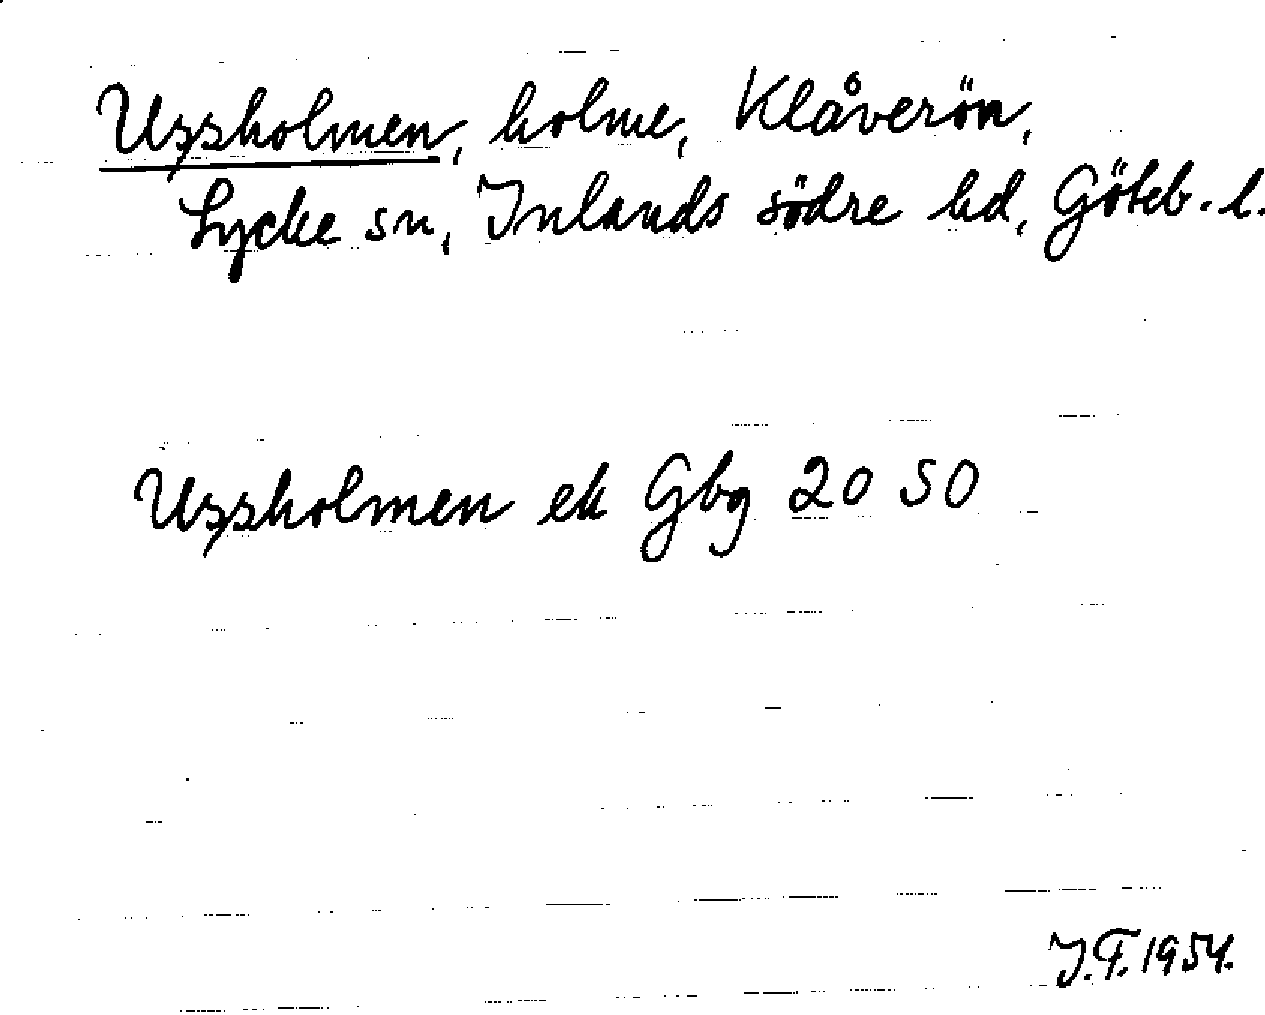 Ussholmen, holme, Klåverön,
Lycke sn, Inlands södre hd, Göteb. l.
Ussholmen ek Gbg 20 SO
J.F. 1954.